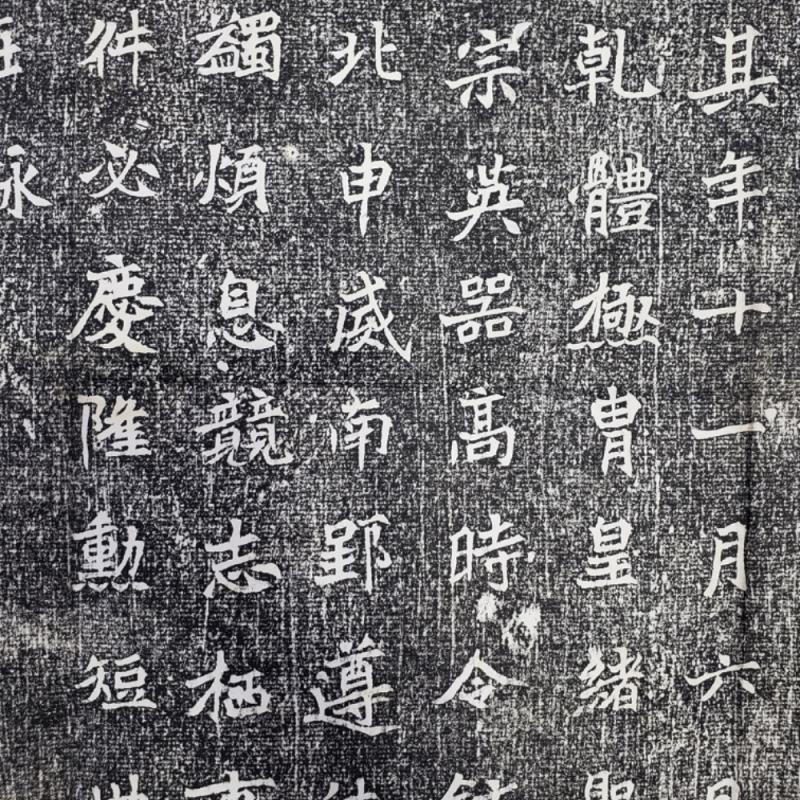 其年十一月六日
乾體極胄皇緒聖
宗英器高時令
北申威南郢遵
蠲煩息競志栖事
件必慶隆勳短世